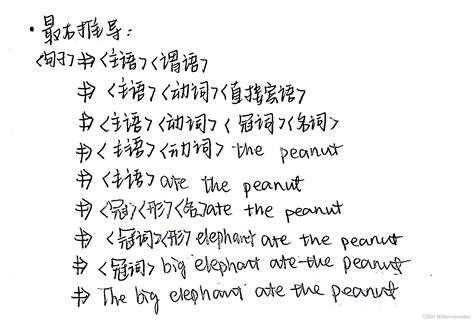 · 最右推导:
<句子> ⇒ <主语><谓语>
⇒ <主语><动词><直接宾语>
⇒ <主语><动词><冠词><名词>
⇒ <主语><动词> the peanut
⇒ <主语> ate the peanut
⇒ <冠><形><名> ate the peanut
⇒ <冠词><形> elephant ate the peanut
⇒ <冠词> big elephant ate the peanut
⇒ The big elephant ate the peanut